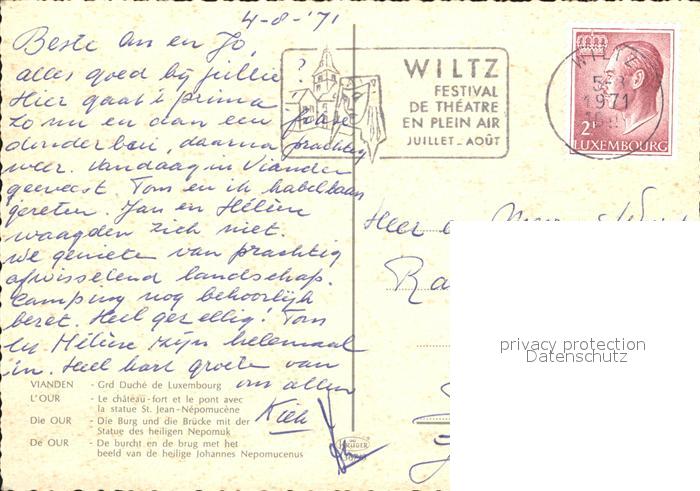 4-8-'71
Beste An en Jo,
alles goed bij jullie?
Hier gaat 't prima
Zo nu en dan een
donderbui, daarna prachtig
weer. Vandaag in Vianden
geweest. Tom en ik kabelbaan
gereten. Jan en Hélène
waagden zich niet.
We genieten van prachtig
afwisselend landschap.
Camping nog behoorlijk
bezet. Heel gezellig! Tom
en Hélène zijn helemaal
in. Heel hart groeten van
ons allen
Kieh
WILTZ
FESTIVAL
DE THÉATRE
EN PLEIN AIR
JUILLET_AOÛT
WILTZ
1971
2F
LUXEMBOURG
Heer
privacy protection
Datenschutz
VIANDEN - Grd Duché de Luxembourg
L'OUR - Le château-fort et le pont avec
la statue St. Jean-Népomucène
Die OUR - Die Burg und die Brücke mit der
Statue des heiligen Nepomuk
De OUR - De burcht en de brug met het
beeld van de heilige Johannes Nepomucenus
KRÜGER